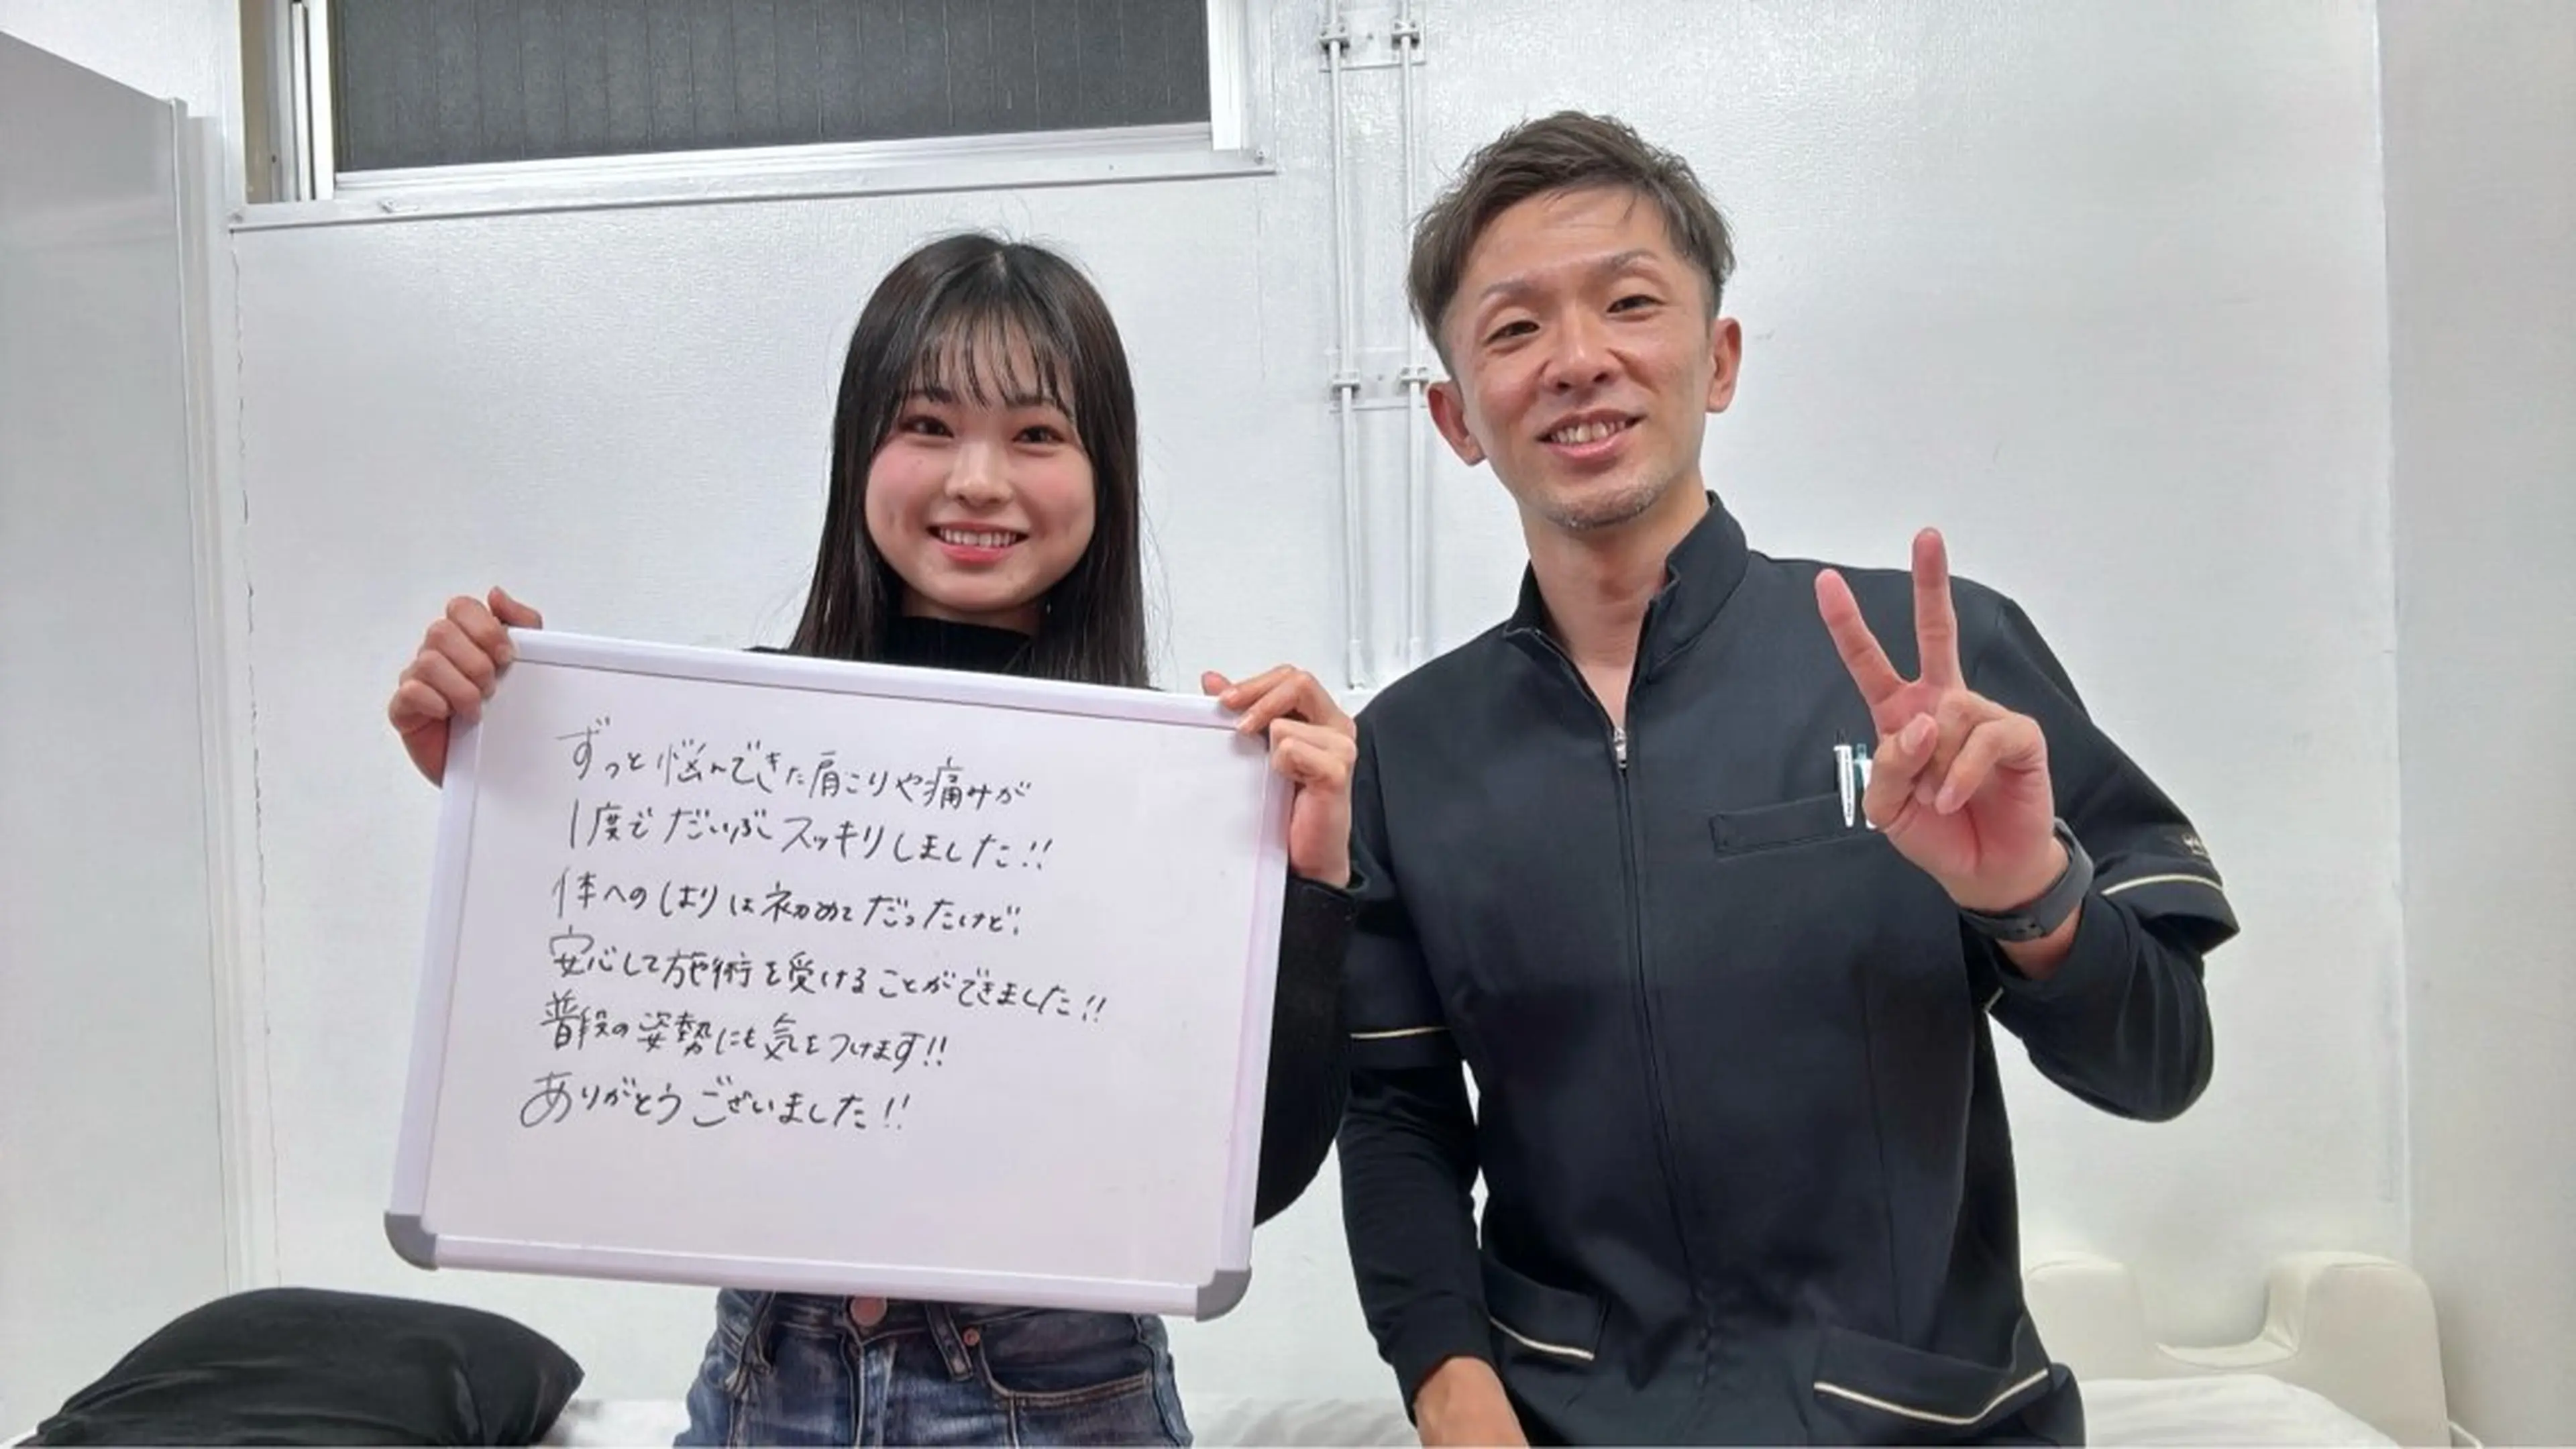 ずっと悩んできた肩こりや痛みが
1度でだいぶスッキリしました!!
体へのはりは初めてだったけど、
安心して施術を受けることができました!!
普段の姿勢にも気をつけます!!
ありがとうございました!!